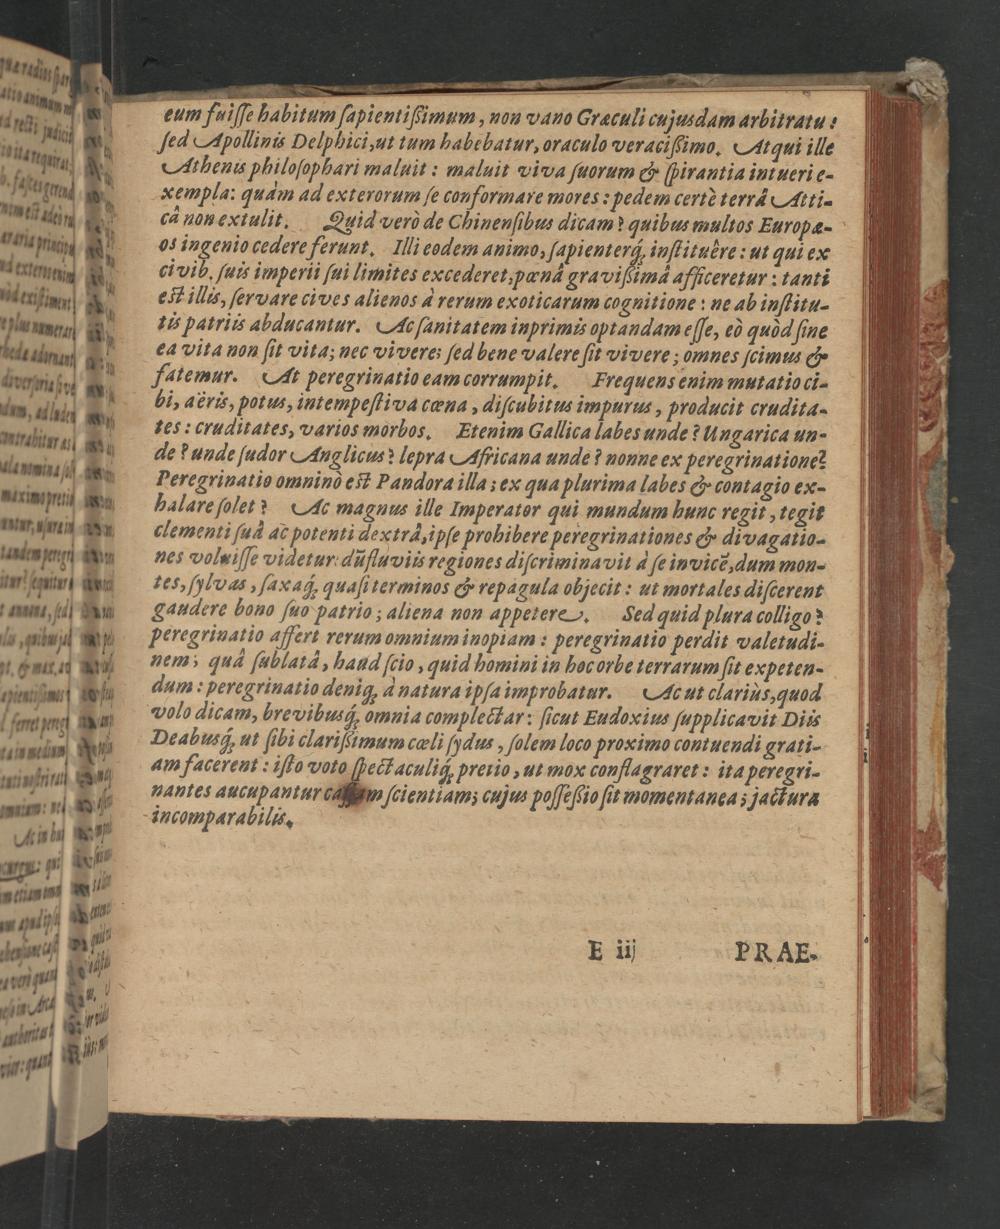 eum fuiſſe habitum ſapientißimum, non vano Græculi cujusdam arbitratu:
ſed Apollinis Delphici, ut tum habebatur, oraculo veracißimo. Atqui ille
Athenis philoſophari maluit: maluit viva ſuorum & ſpirantia intueri e-
xempla: quàm ad exterorum ſe conformare mores: pedem certè terrâ Atti-
câ non extulit. Quid verò de Chinenſibus dicam? quibus multos Europæ-
os ingenio cedere ferunt. Illi eodem animo, ſapienterq́; inſtituêre: ut qui ex
civib. ſuis imperii ſui limites excederet, pœnâ gravißimâ afficeretur: tanti
eſt illis, ſervare cives alienos à rerum exoticarum cognitione: ne ab inſtitu-
tis patriis abducantur. Ac ſanitatem inprimis optandam eſſe, eò quòd ſine
ea vita non ſit vita; nec vivere; ſed bene valere ſit vivere; omnes ſcimus &
fatemur. At peregrinatio eam corrumpit. Frequens enim mutatio ci-
bi, aëris, potus, intempeſtiva cœna, diſcubitus impurus, producit crudita-
tes: cruditates, varios morbos. Etenim Gallica labes unde? Ungarica un-
de? unde ſudor Anglicus? lepra Africana unde? nonne ex peregrinatione?
Peregrinatio omninò eſt Pandora illa; ex qua plurima labes & contagio ex-
halare ſolet? Ac magnus ille Imperator qui mundum hunc regit, tegit
clementi ſuâ ac potenti dextrâ, ipſe prohibere peregrinationes & divagatio-
nes voluiſſe videtur: dũ fluviis regiones diſcriminavit à ſe invicẽ, dum mon-
tes, ſylvas, ſaxaq́; quaſi terminos & repagula objecit: ut mortales diſcerent
gaudere bono ſuo patrio; aliena non appetere. Sed quid plura colligo?
peregrinatio affert rerum omnium inopiam: peregrinatio perdit valetudi-
nem; quâ ſublatâ, haud ſcio, quid homini in hoc orbe terrarum ſit expeten-
dum: peregrinatio deniq; à natura ipſa improbatur. Ac ut clariùs, quod
volo dicam, brevibusq́; omnia complectar: ſicut Eudoxius ſupplicavit Diis
Deabusq́; ut ſibi clarißimum cœli ſydus, ſolem loco proximo contuendi grati-
am facerent: iſto voto ſpectaculiq́; pretio, ut mox conflagraret: ita peregri-
nantes aucupantur caſſam ſcientiam; cujus poſſeßio ſit momentanea; jactura
incomparabilis.
E iij PRAE-